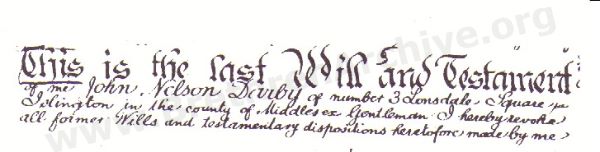 This is the last Will and Testament
of me John Nelson Darby of number 3 Lonsdale Square
Islington in the county of Middlesex Gentleman I hereby revoke
all former Wills and testamentary dispositions heretofore made by me